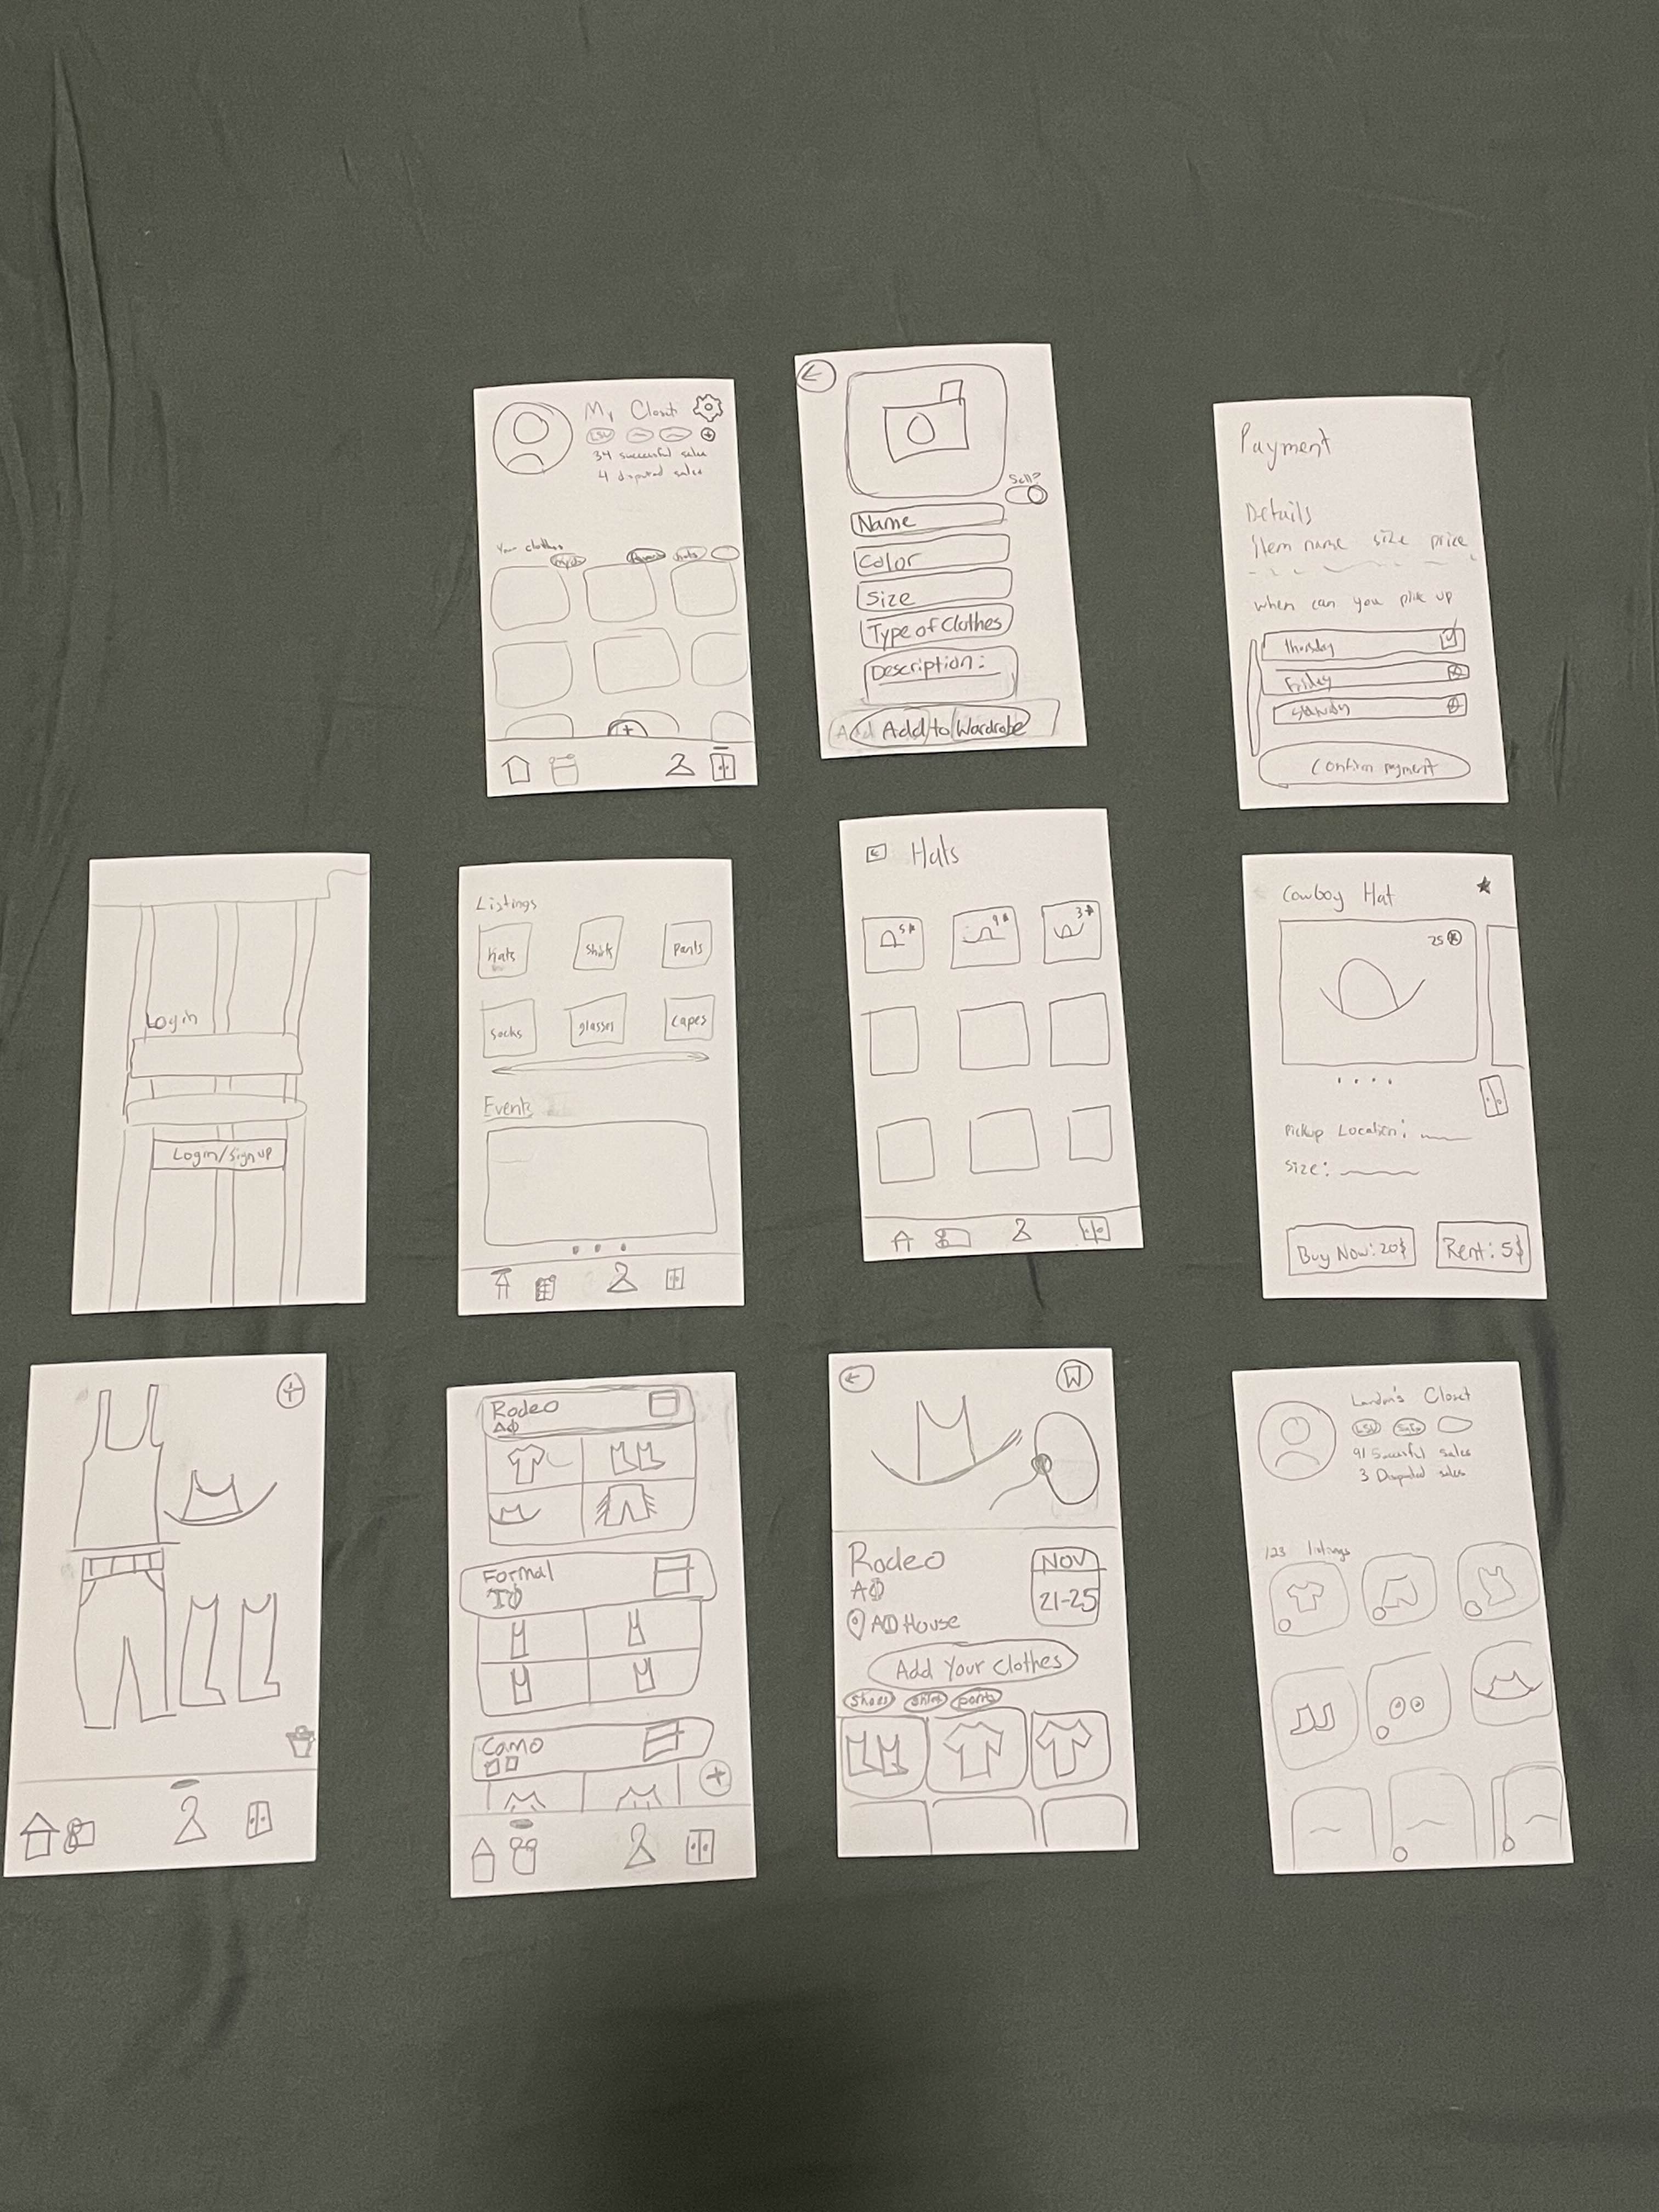 My Closet
LSU
34 successful sales
4 disputed sales
Your clothes
hats
Sell?
Name
Color
Size
Type of Clothes
Description:
Add to Wardrobe
Payment
Details
item name size price
when can you pick up
Thursday
Friday
Confirm payment
Login
Login/Sign up
Listings
hats
shirts
pants
socks
glasses
capes
Events
Hats
5$
9$
3$
Cowboy Hat
25
Pickup Location:
Size:
Buy Now: 20$
Rent: 5$
Rodeo
ΑΦ
Formal
ΤΦ
Camo
Rodeo
ΑΦ
NOV
21-25
Add Your Clothes
shoes
shirts
pants
Landon's Closet
LSU
91 Sucessful sales
3 Disputed sales
123 listings